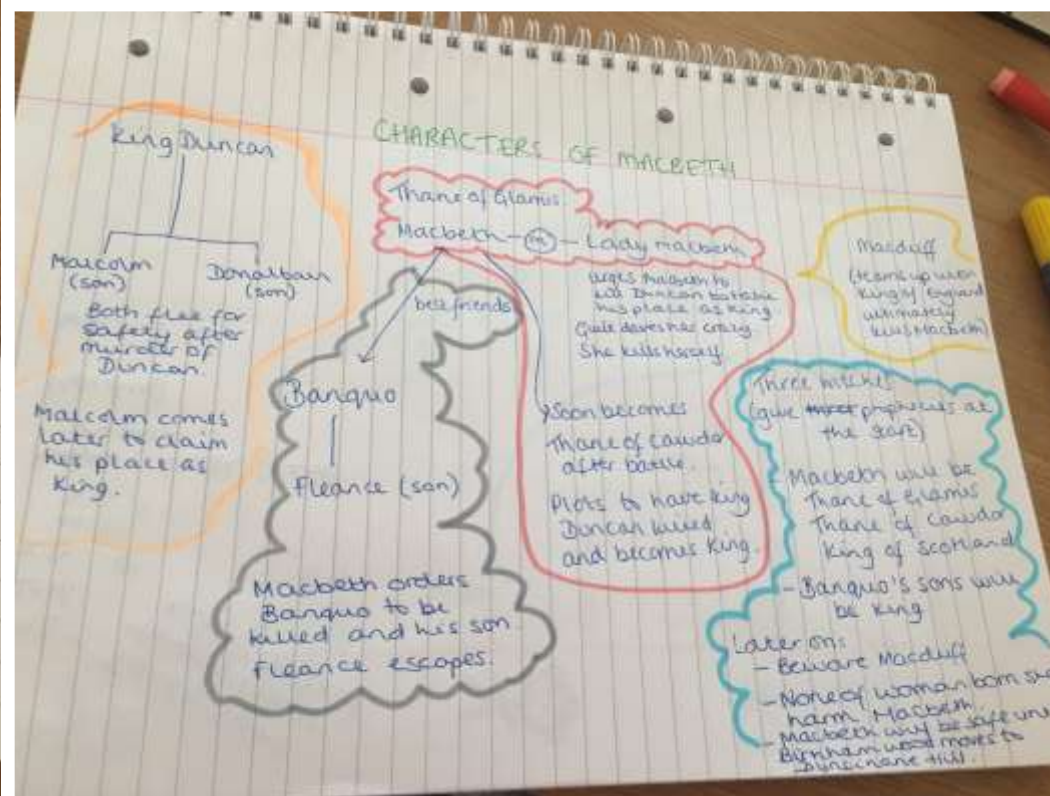 CHARACTERS OF MACBETH
King Duncan
Malcolm
(son)
Donalbain
(son)
Both flee for
safety after
murder of
Duncan.
Malcolm comes
later to claim
his place as
King.
Thane of Glamis
Macbeth - - Lady Macbeth
urges Macbeth to
kill Duncan to take
his place as King.
Guilt drives her crazy
She kills herself
best friends
Banquo
Fleance (son)
Macbeth orders
Banquo to be
killed and his son
Fleance escapes.
Soon becomes
Thane of Cawdor
after battle.
Plots to have King
Duncan killed
and becomes King.
Macduff
(teams up with
King of England
ultimately
kills Macbeth)
Three witches
(give three prophecies at
the start)
Macbeth will be
Thane of Glamis
Thane of Cawdor
King of Scotland
- Banquo's sons will
be King
Later on:
- Beware Macduff
- None of woman born
harm Macbeth
- Macbeth will be safe
Birnham wood moves to
Dunsinane Hill.